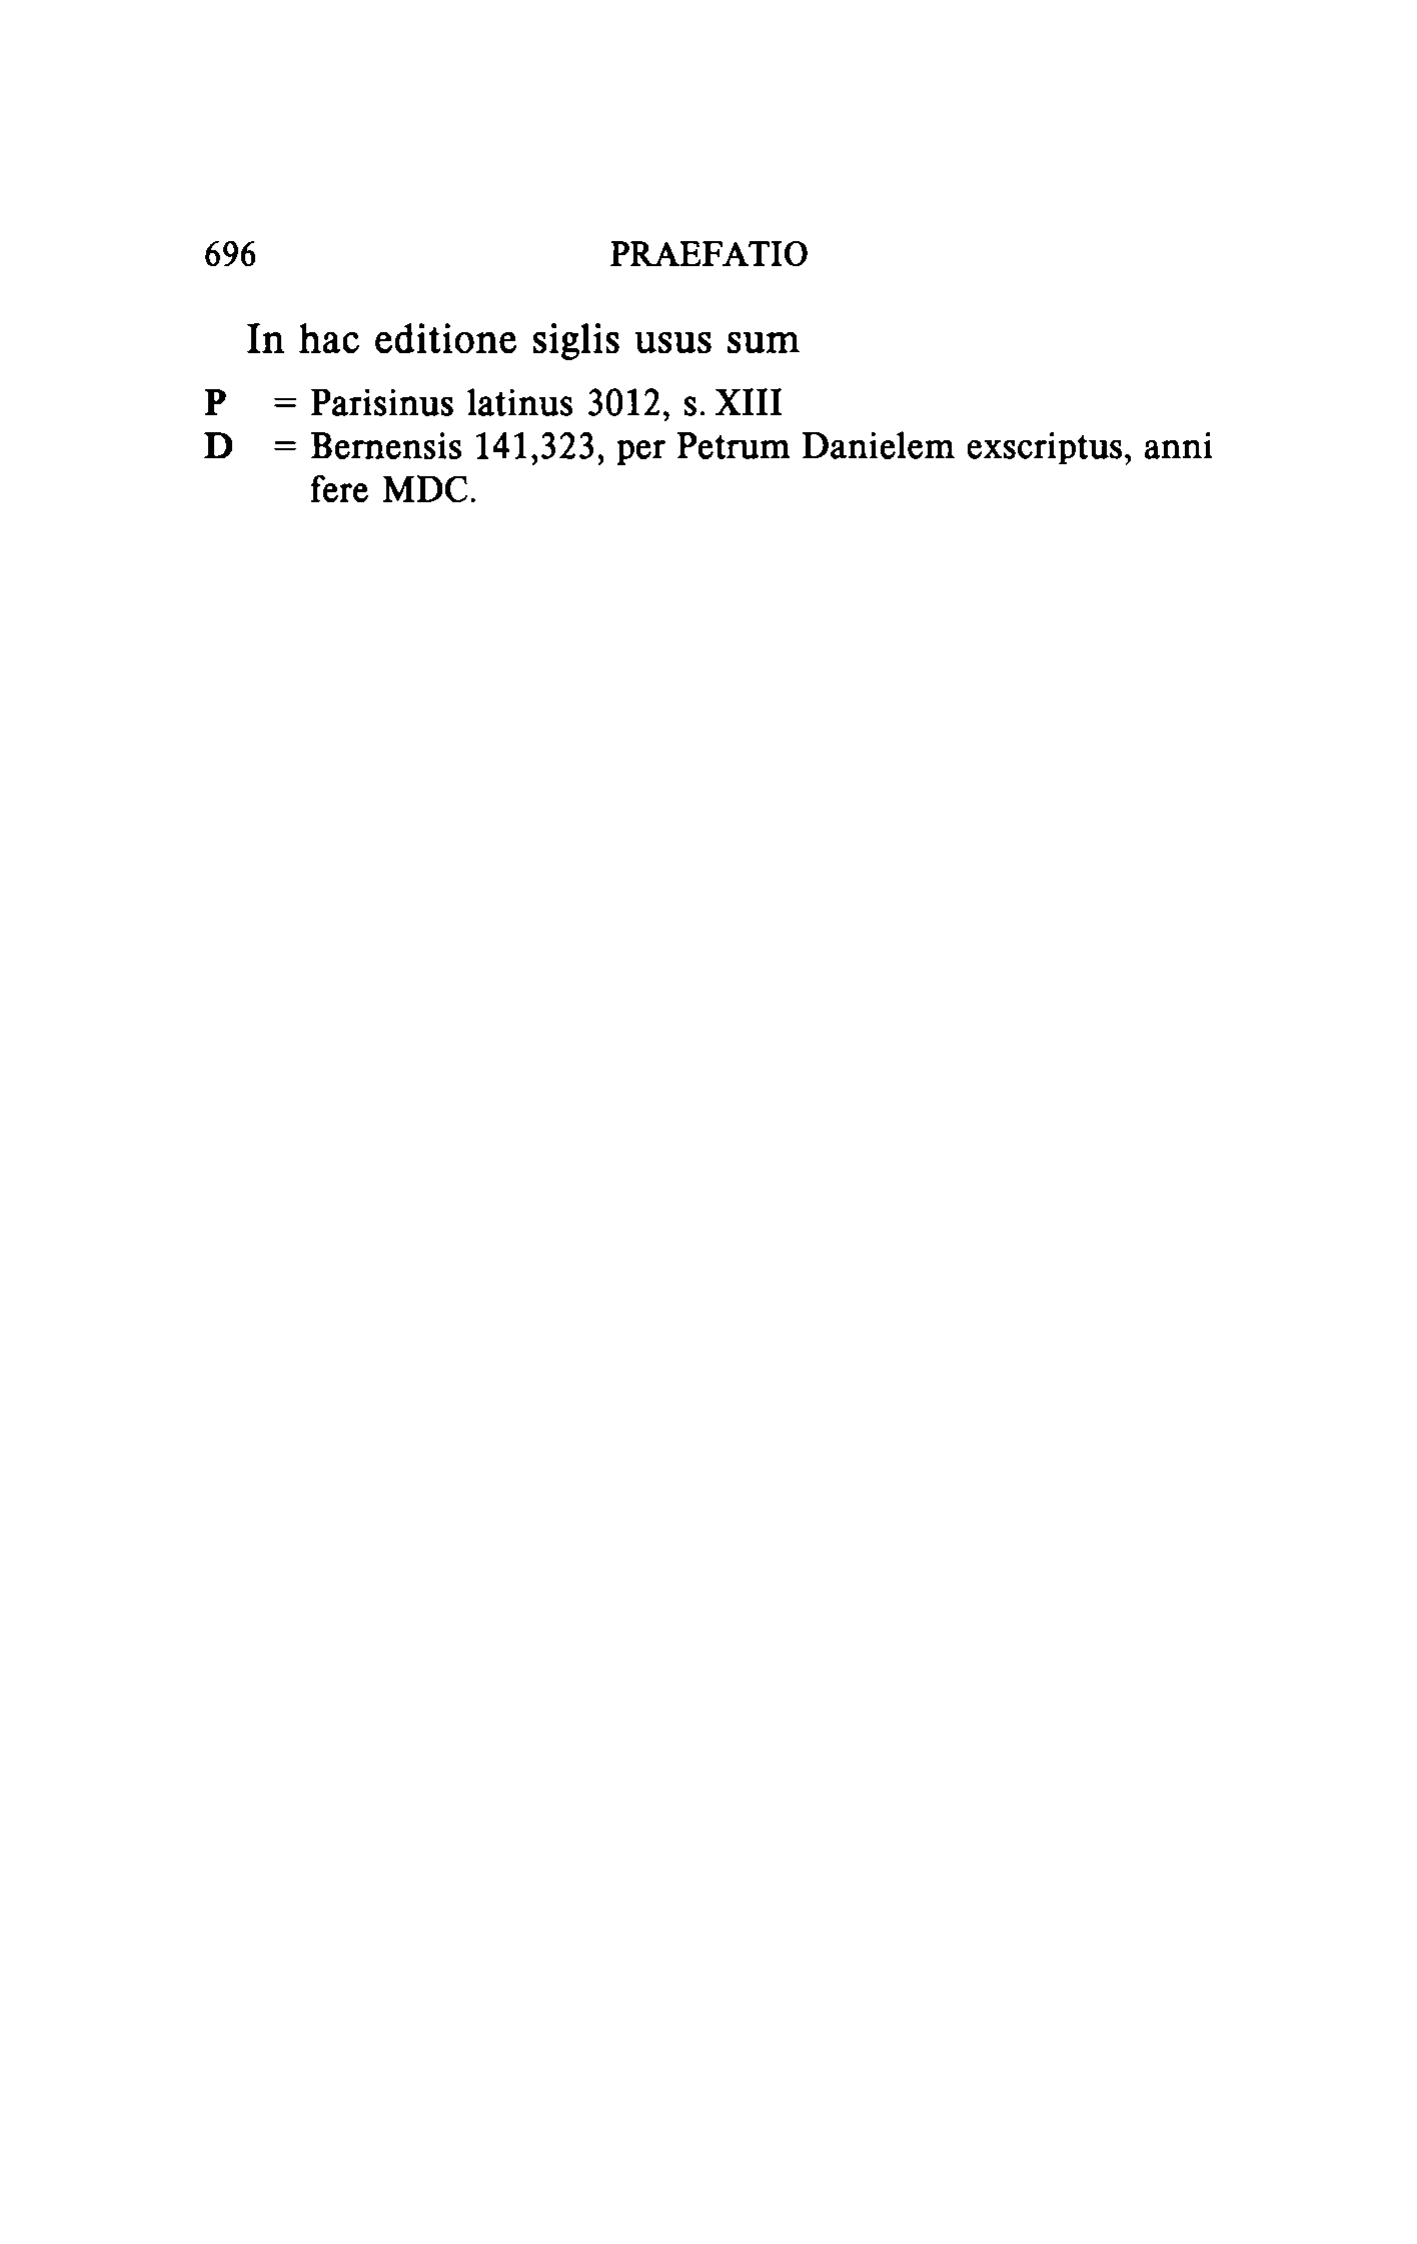 696 PRAEFATIO
In hac editione siglis usus sum
P = Parisinus latinus 3012, s. XIII
D = Bernensis 141,323, per Petrum Danielem exscriptus, anni
fere MDC.